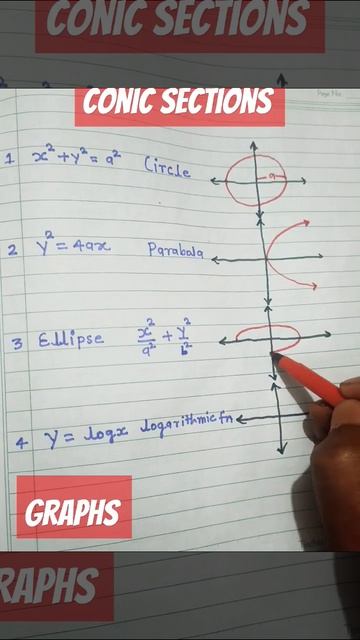 CONIC SECTIONS
Page No.
CONIC SECTIONS
1 x²+y²=a² Circle
a
2 y²=4ax Parabala
3 Ellipse x²/a² + y²/b²
4 y=logx logarithmic fn
GRAPHS
RAPHS